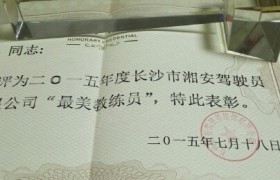 HONORARY CREDENTIAL
同志：
评为二〇一五年度长沙市湘安驾驶员
公司“最美教练员”，特此表彰。
二〇一五年七月十八日